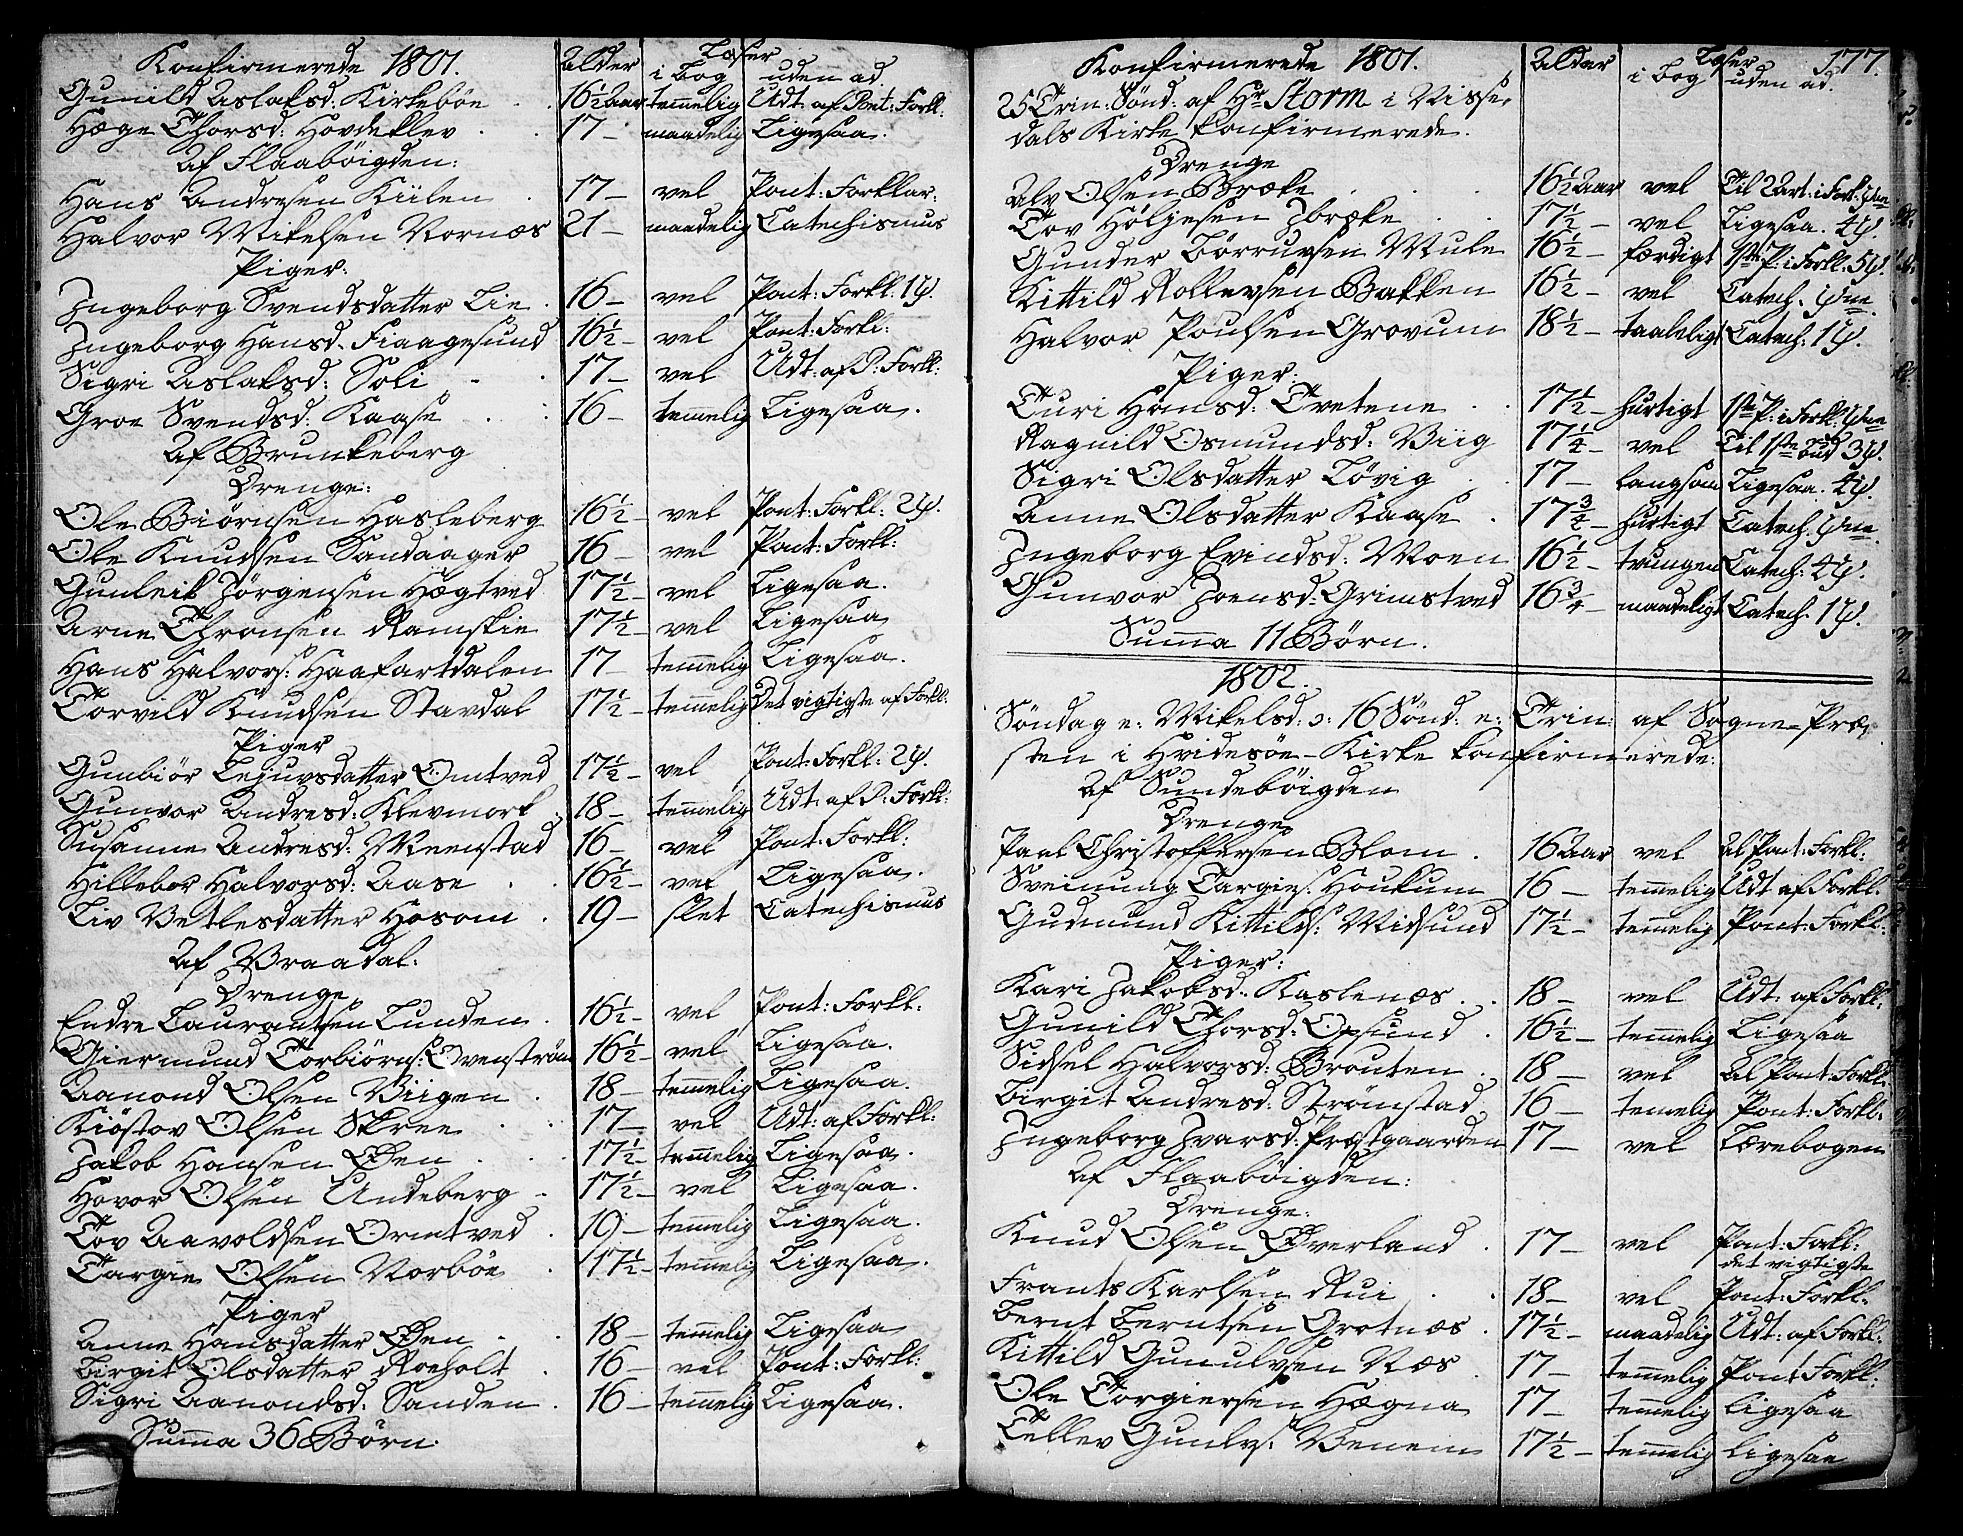 Konfirmerede 1801. Alder Læser
i bog uden ad
Gunild Aslaksd: Kirkebøe 16½ Aar temmelig Udt. af Pont: Forkl:
Hæge Thorsd: Hovdeklev 17 – maadelig Ligesaa.
Af Flaabøigden:
Hans Andresen Kiilen 17 – vel Pont: Forklar:
Halvor Mikelsen Nornæs 21 – maadelig Catechismus
Piger:
Ingeborg Svendsdatter Lie 16 – vel Pont: Forkl:
Ingeborg Hansd. Fiaagesund 16½ – vel Pont: Forkl:
Sigri Aslaksd: Soli 17 – vel Udt: af P: Forkl:
Groe Svendsd: Kaase 16 – temelig Ligesaa.
Af Brunkeberg
Drenge:
Ole Biørnsen Hasleberg 16½ – vel Pont: Forkl:
Ole Knudsen Sandaager 16 – vel Pont: Forkl:
Gunleik Jørgensen Hægtved 17½ – vel Ligesaa.
Arne Thronsen Ramskie 17½ – vel Ligesaa
Hans Halvors: Haafartdalen 17 temmelig Ligesaa.
Torveld Knudsen Stavdal 17½ – temmelig Det vigtigste af Forkl:
Piger
Gunbiør Lejuvsdatter Omtved 17½ – vel Pont: Forkl:
Gunvor Andresd: Klevmork 18 – temmelig Udt: af P: Forkl:
Susanne Andresd: Meenstad 16 – vel Pont: Forkl:
Hillebor Halvorsd: Aase 16½ – vel Ligesaa.
Liv Vetlesdatter Hosom 19 – slet Catechismus
Af Vraadal.
Drenge
Endre Laurantsen Lunden 16½ – vel Pont: Forkl:
Giermund Torbiørns: Ovenstrøm 16½ – vel Ligesaa.
Aanond Olsen Viigen 18 – temmelig Ligesaa.
Kiøstov Olsen Skree 17 – vel Udt: af Forkl:
Jakob Hansen Øen 17½ – temmelig Ligesaa.
Hovor Olsen Undeberg 17½ – vel Ligesaa.
Tov Aavoldsen Ormtved 19 – temmelig Ligesaa.
Targie Olsen Norbøe 17½ – temmelig Ligesaa.
Piger
Anne Hansdatter Øen 18 – temmelig Ligesaa
Birgit Olsdatter Roeholt 16 – vel Pont: Forkl:
Sigri Aanondsd: Sanden 16 – temmelig Ligesaa.
Summa 36 Børn.
Konfirmerede 1801. Alder Læser 177.
i bog uden ad.
25 Trin: Sønd: af Hr Storm i Nisse-
dals Kirke konfirmerede.
Drenge
Alv Olsen Bræke 16½ Aar vel Til 2 Art: i Fork:
Tov Høljesen Ibræke 17½ – vel Ligesaa.
Gunder Børruvsen Mule 16½ – færdigt 1ste P: i Forkl:
Kittild Rollevsen Bakken 16½ – vel Catech.
Halvor Poulsen Grovum 18½ – taalelig Catech:
Piger:
Turi Hansd: Tvetene 17½ – hurtigt 1ste P: i Forkl:
Ragnild Osmundsd: Viig 17¼ – vel Til 1ste bud
Sigri Olsdatter Løvig 17 – langsom Ligesaa.
Anne Olsdatter Kaase 17¾ – hurtigt Catech.
Ingeborg Evindsd: Moen 16½ – tvungen Catech:
Gunvor Joensd: Grimstved 16¾ – maadeligt Catech.
Summa 11 Børn.
1802.
Søndag e: Mikelsd: ɔ: 16 Sønd: e: Trin: af Sogne-Præ-
sten i Hvidesøe-Kirke konfirmerede:
af Sundebøigden
Drenge
Paal Christoffersen Blom 16 Aar vel Al Pont: Forkl:
Sveinung Targies: Houkum 16 – temmelig Udt af Forkl:
Gudmund Kittilds: Midsund 17½ – temmelig Pont: Forkl:
Piger:
Kari Jakobsd: Kaslenæs 18 – vel Udt: af Forkl:
Gunild Thorsd: Opsund 16½ – temmelig Ligesaa
Sidsel Halvorsd: Brouten 18 – vel Al Pont: Forkl:
Birgit Andresd: Strømstad 16 – temelig Pont: Forkl:
Ingeborg Ivarsd: Præstgaarden 17 – vel Lærebogen
af Flaabøigden:
Drenge:
Knud Olsen Øverland 17 – vel Pont: Forkl:
det vigtigste
Frants Karlsen Rui 18 – vel Pont: Forkl:
Bernt Berntsen Grotnæs 17½ – maadelig Udt: af Forkl:
Kittild Gunulvsen Næs 17 – temmelig Pont Forkl:
Ole Torgiersen Hægna 17 – temmelig Ligesaa
Tellev Gunlvs: Venem 17½ – temmelig Ligesaa